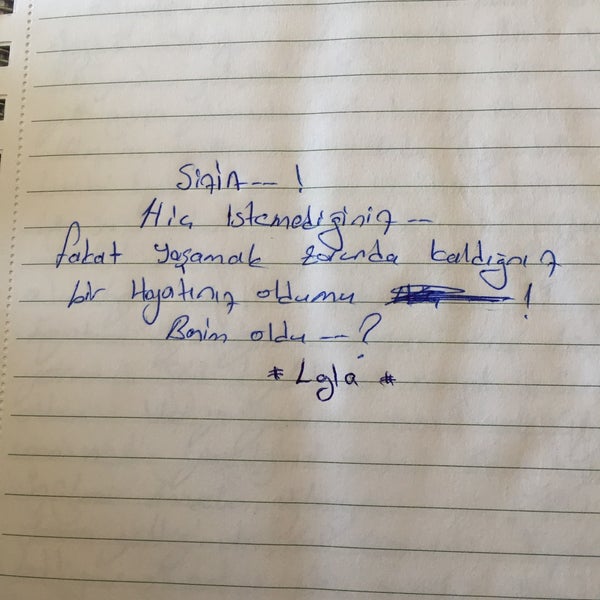 Sizin -- !
Hiç istemediğiniz --
fakat yaşamak zorunda kaldığınız
bir Hayatınız oldumu !
Benim oldu -- ?
* Leyla *